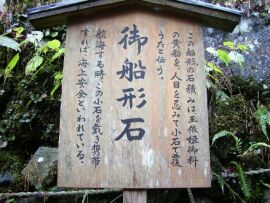 この船形の石積みは玉依姫御料
の黄船を、人目を忌みて小石で覆
うたと伝う。
御船形石
航海する時、この小石を戴き携帯
すれば、海上安全といわれている。